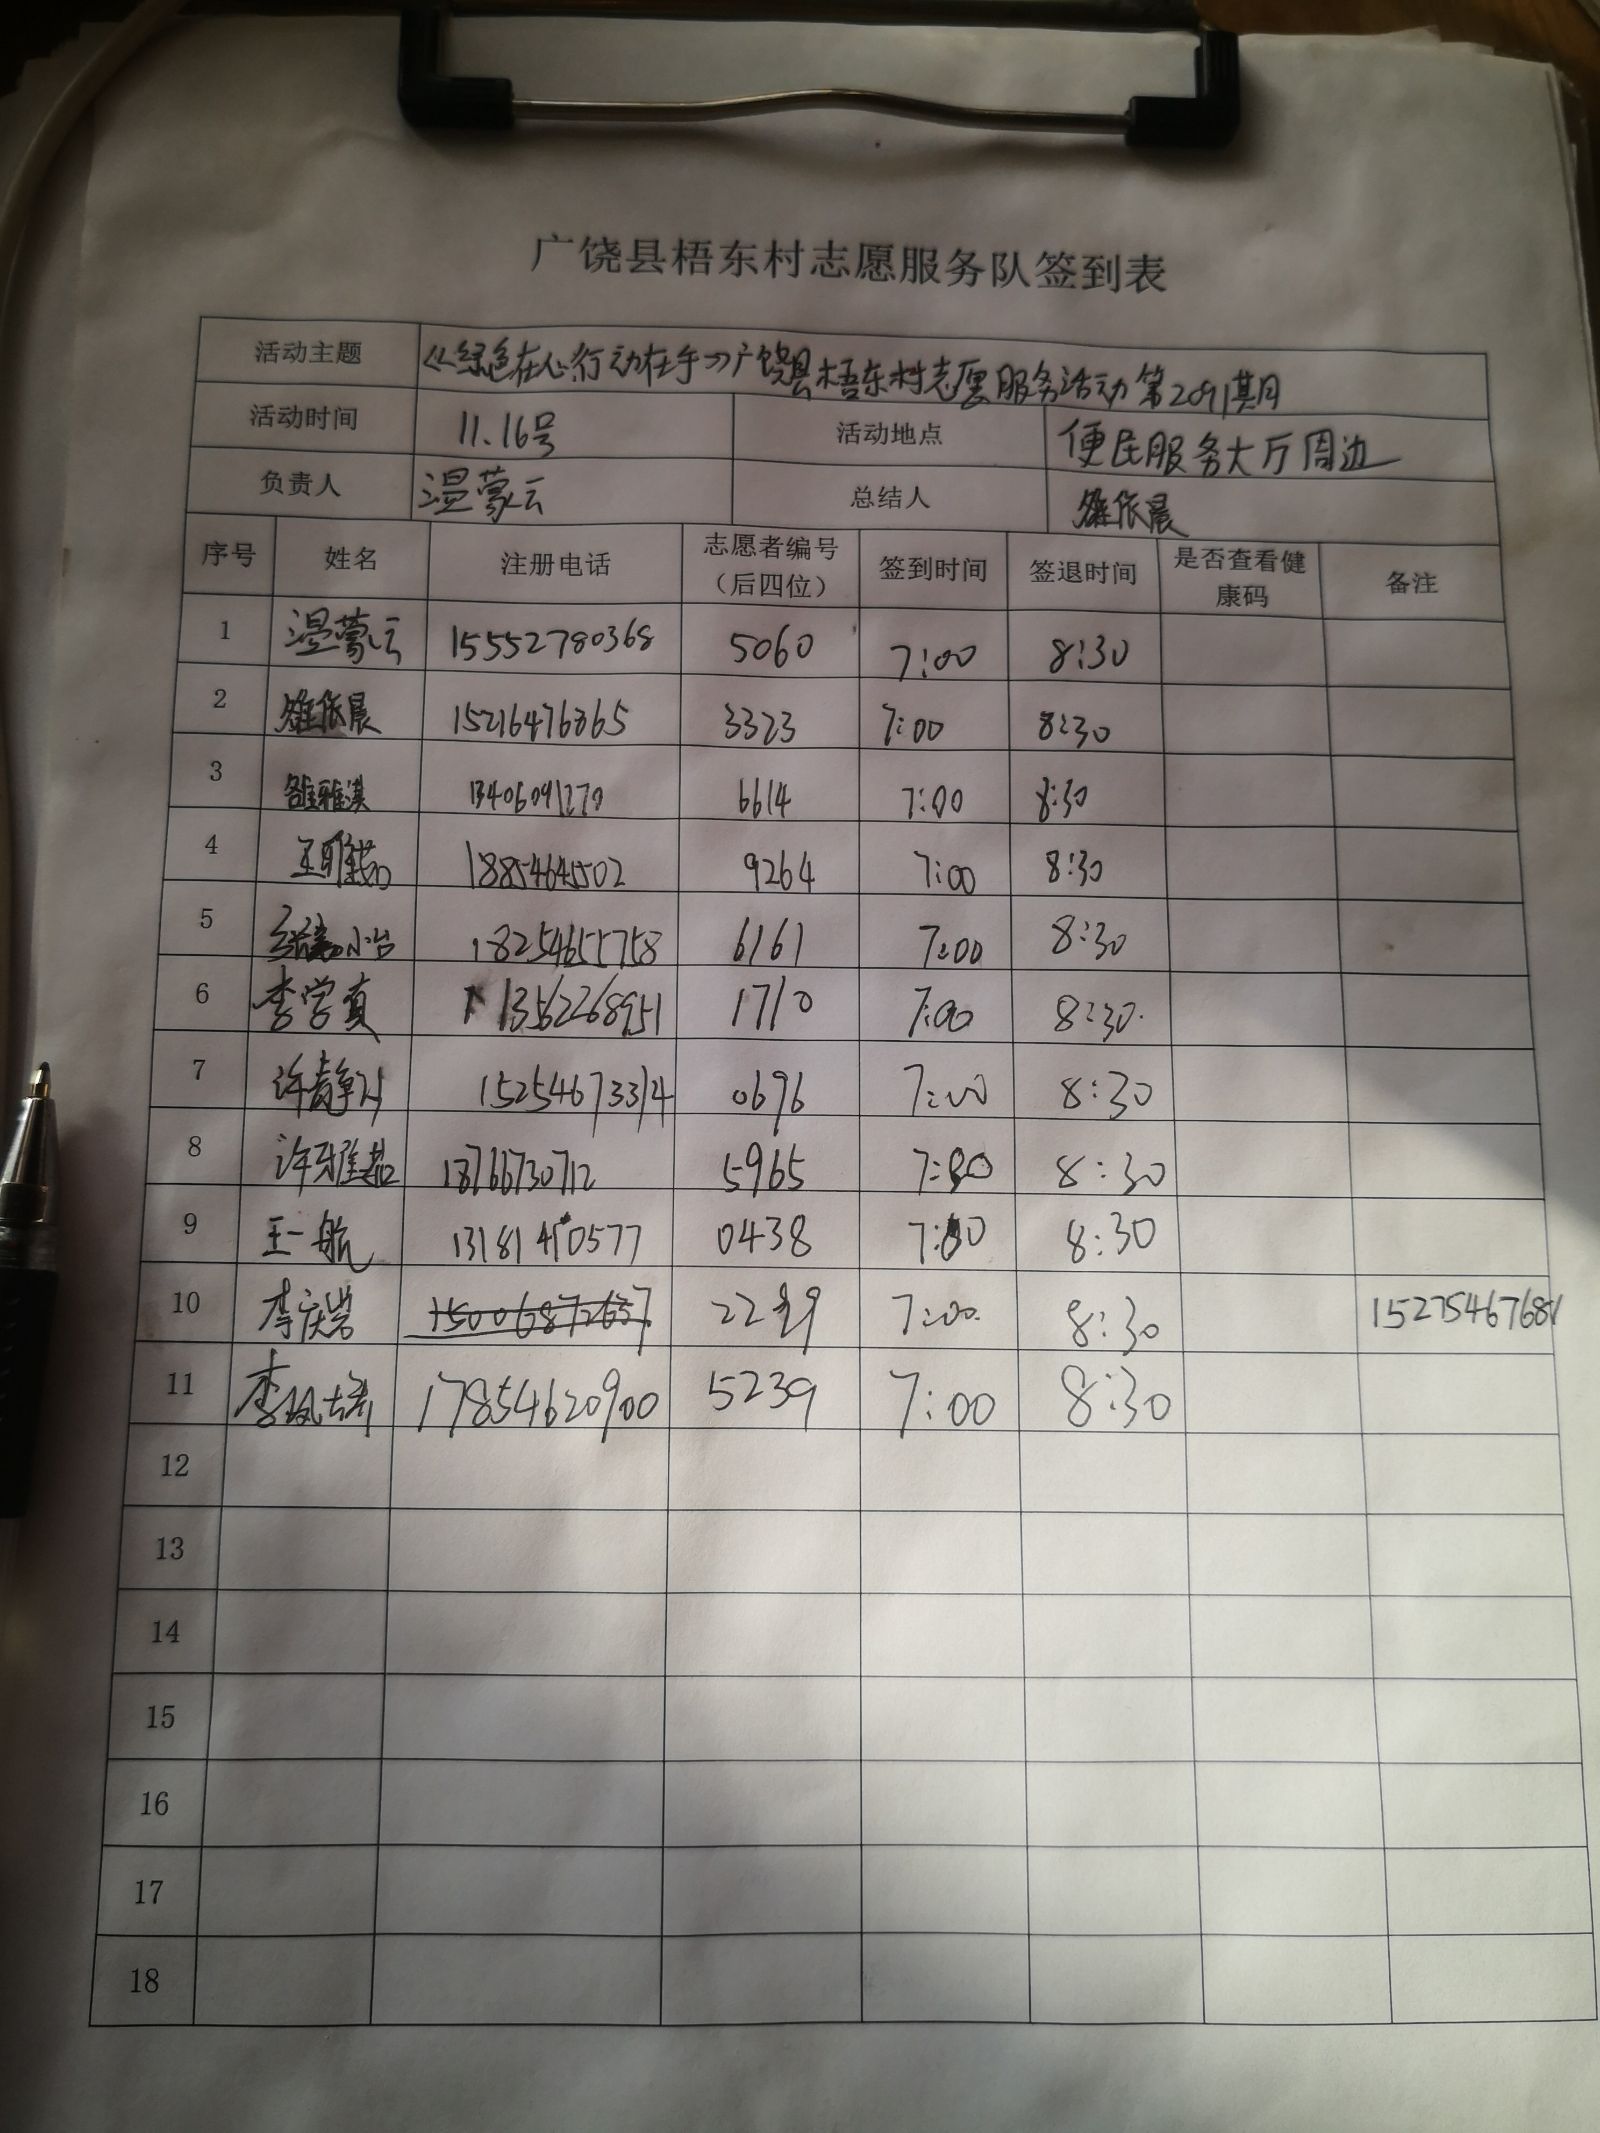 广饶县梧东村志愿服务队签到表
活动主题 《绿色在心行动在手》广饶县梧东村志愿服务活动第2091期
活动时间 11.16号 活动地点 便民服务大厅周边
负责人 湿蒙云 总结人 雒依晨
序号 姓名 注册电话 志愿者编号（后四位） 签到时间 签退时间 是否查看健康码 备注
1 湿蒙云 15552780368 5060 7:00 8:30
2 雒依晨 15216476365 3323 7:00 8:30
3 雒雅淇 13406091270 6614 7:00 8:30
4 王雅茹 18854645502 9264 7:00 8:30
5 18254655758 6161 7:00 8:30
6 李学真 13562268951 1710 7:00 8:30
7 许静 15254673314 0696 7:00 8:30
8 许雅茹 18766730712 5965 7:30 8:30
9 王一航 0438 7:00 8:30
10 李庆岩 15006872657 7:00 8:30 15275467681
11 李凤 17854620900 5239 7:00 8:30
12
13
14
15
16
17
18